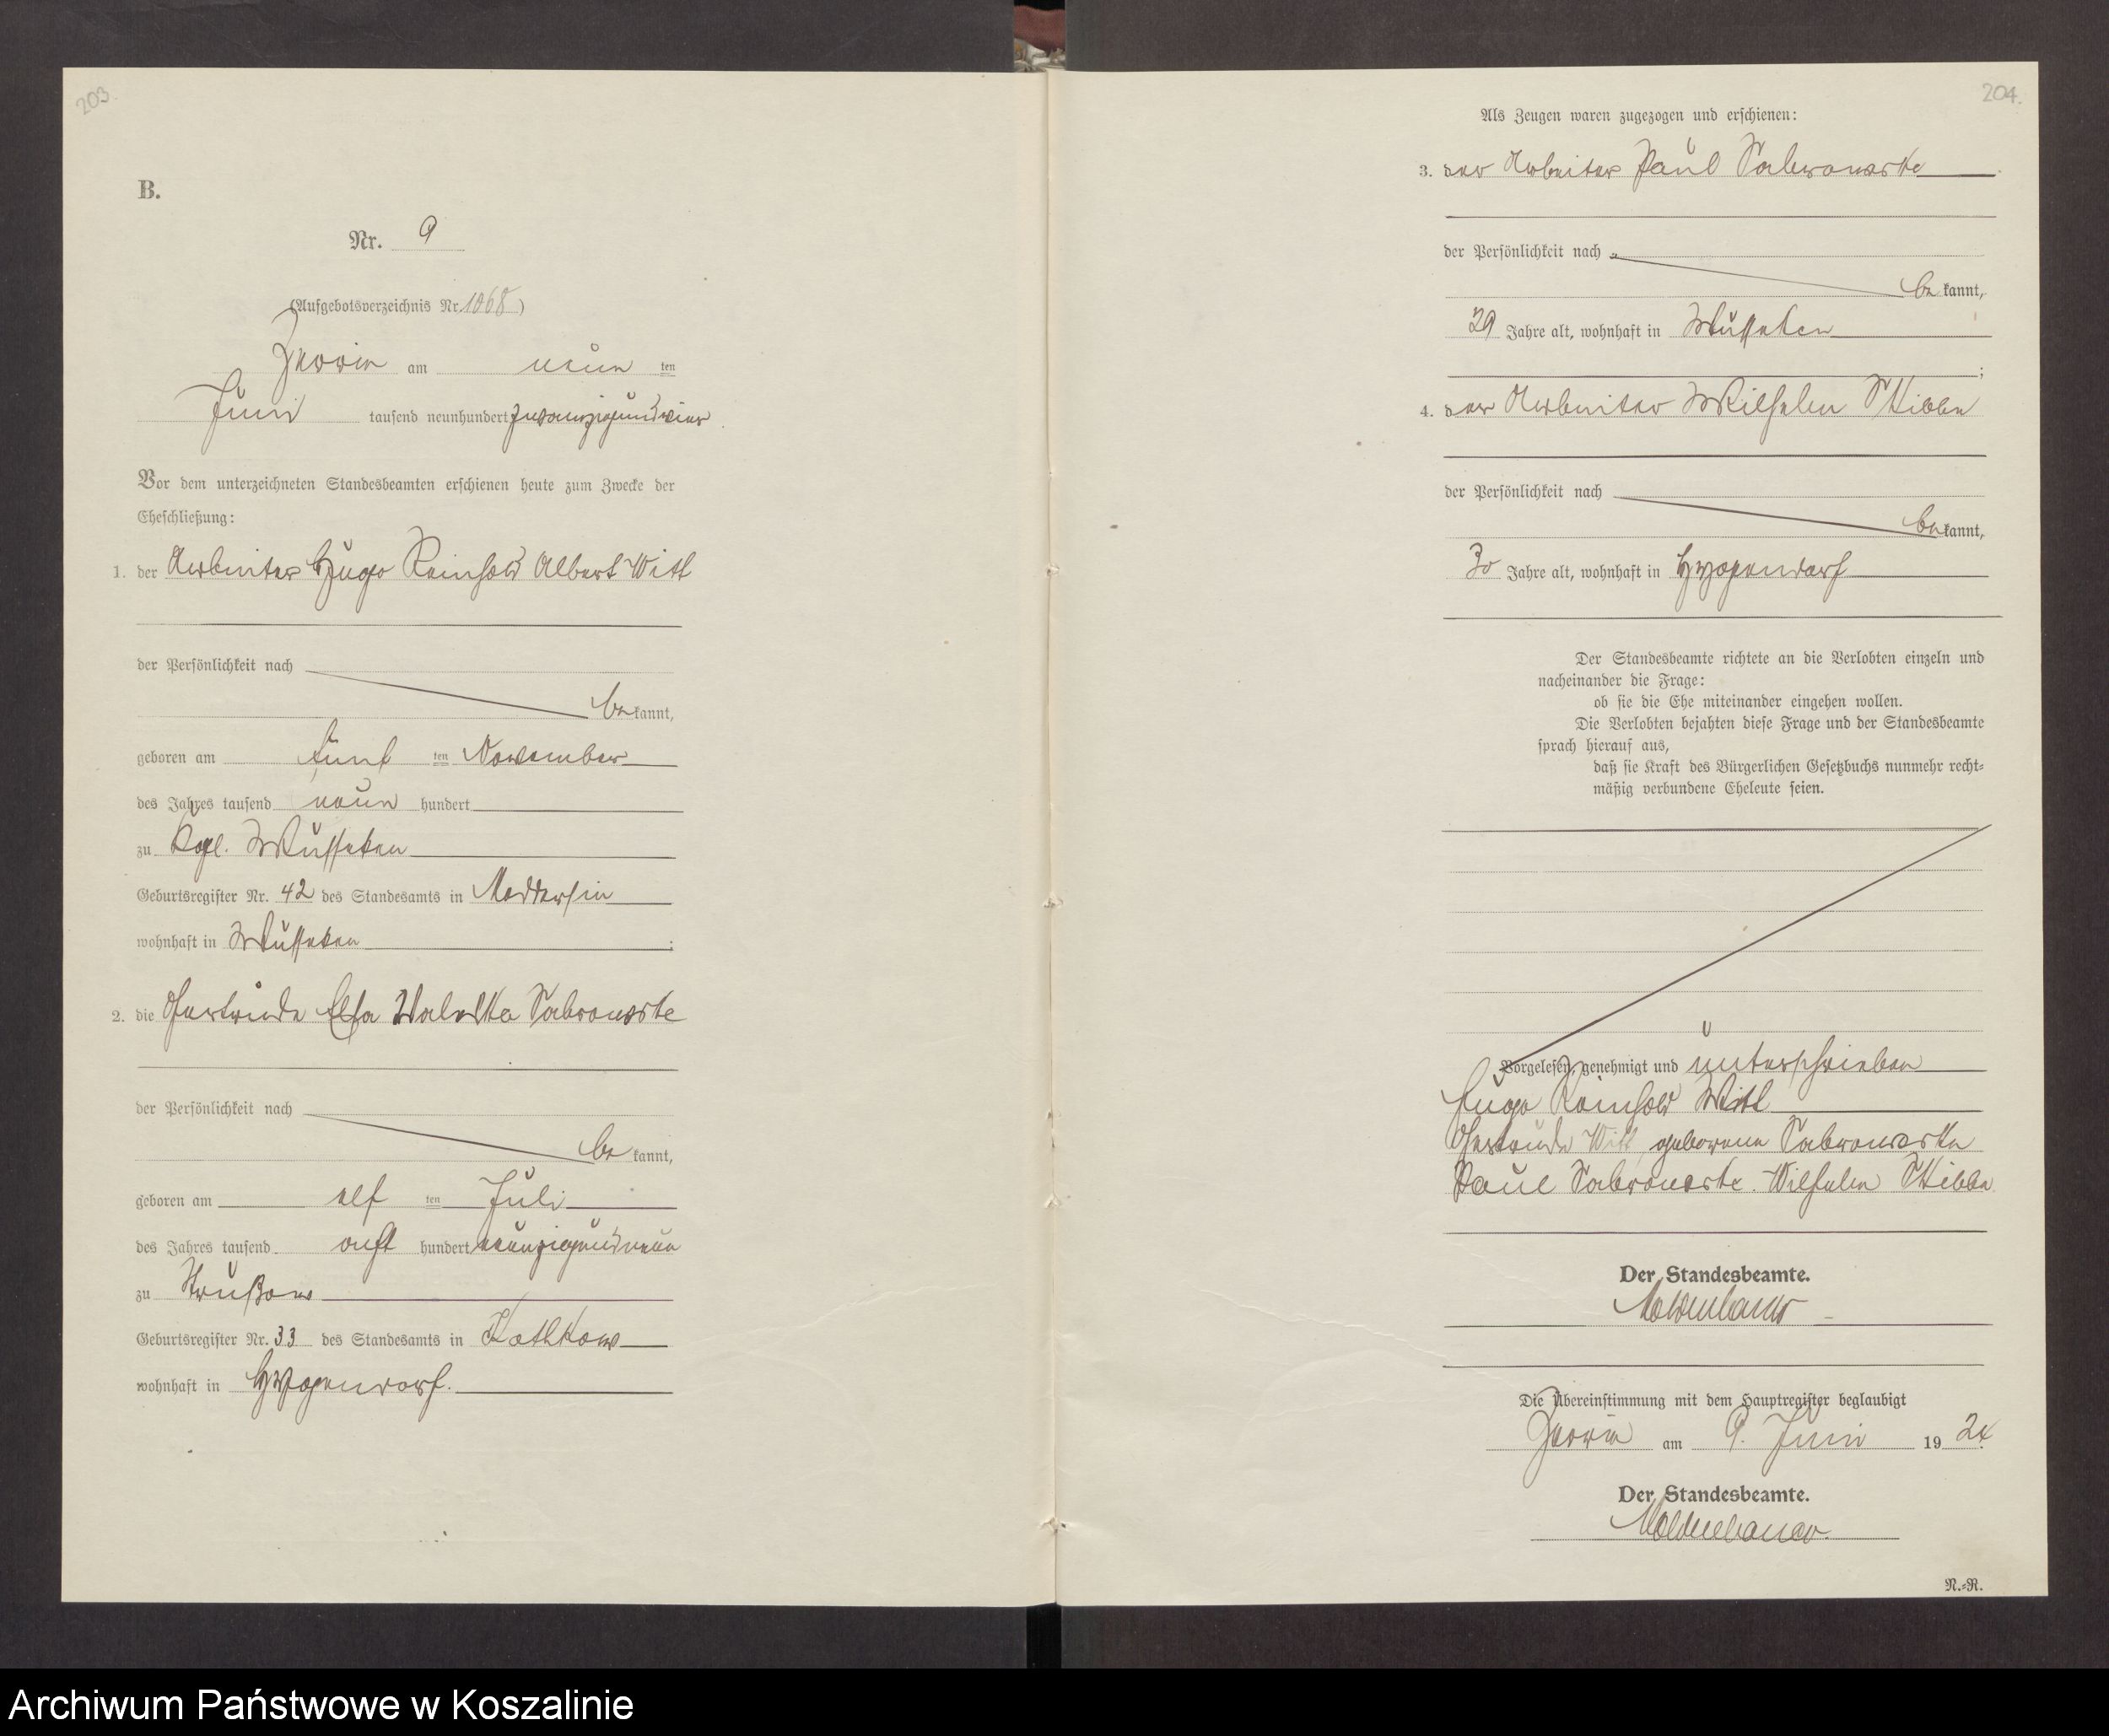 203.
B.
Nr. 9
(Aufgebotsverzeichnis Nr. 1068)
Zerrin am neun ten
Juni tausend neunhundert zwanzigundvier
Vor dem unterzeichneten Standesbeamten erschienen heute zum Zwecke der
Eheschließung:
1. der Arbeiter Hugo Reinhold Albert Witt
der Persönlichkeit nach
be kannt,
geboren am fünf ten November
des Jahres tausend neun hundert
zu Kgl. Wusseken
Geburtsregister Nr. 42 des Standesamts in Moddersin
wohnhaft in Wusseken ;
2. die Gertrude Elsa Waleska
der Persönlichkeit nach
be kannt,
geboren am elf ten Juli
des Jahres tausend acht hundert neunzigundneun
zu Strußow
Geburtsregister Nr. 33 des Standesamts in Kathkow
wohnhaft in Hygendorf.
204.
Als Zeugen waren zugezogen und erschienen:
3. der Arbeiter Paul
der Persönlichkeit nach
be kannt,
29 Jahre alt, wohnhaft in Wusseken
;
4. der Arbeiter Wilhelm Stibbe
der Persönlichkeit nach
be kannt,
30 Jahre alt, wohnhaft in Hygendorf
Der Standesbeamte richtete an die Verlobten einzeln und
nacheinander die Frage:
ob sie die Ehe miteinander eingehen wollen.
Die Verlobten bejahten diese Frage und der Standesbeamte
sprach hierauf aus,
daß sie Kraft des Bürgerlichen Gesetzbuchs nunmehr recht-
mäßig verbundene Eheleute seien.
Vorgelesen, genehmigt und unterschrieben
Hugo Reinhold Witt
Gertrude Witt geborene
Paul Wilhelm Stibbe
Der Standesbeamte.
Die Übereinstimmung mit dem Hauptregister beglaubigt
Zerrin am 9. Juni 19 24
Der Standesbeamte.
N.-R.
Archiwum Państwowe w Koszalinie